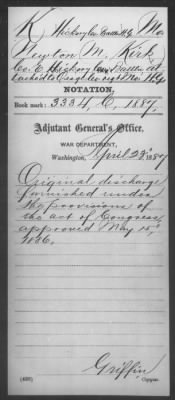 K Hickory Co. Battn H.G. Mo.
Newton M. Kirk
Co. E Hickory Co. Battn.
attached to Regt. Mo. H.G.
NOTATION.
Book mark: 3334, C, 1887.
Adjutant General's Office,
WAR DEPARTMENT,
Washington, April 22, 1887
Original discharge
furnished under
the provisions of
the act of Congress
approved May 15,
1886.
Griffin
(488) Copyist.